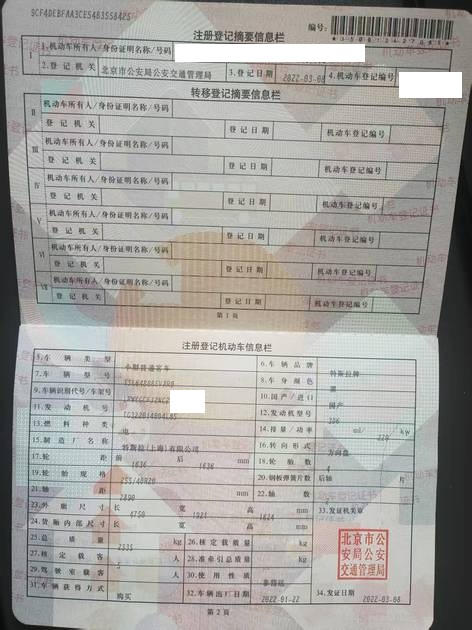 注册登记摘要信息栏
编号:
I
1.机动车所有人/身份证明名称/号码
2.登记机关 北京市公安局公安交通管理局 3.登记日期 2022-03-08 4.机动车登记编号
转移登记摘要信息栏
II 机动车所有人/身份证明名称/号码
登记机关 登记日期 机动车登记编号
III 机动车所有人/身份证明名称/号码
登记机关 登记日期 机动车登记编号
IV 机动车所有人/身份证明名称/号码
登记机关 登记日期 机动车登记编号
V 机动车所有人/身份证明名称/号码
登记机关 登记日期 机动车登记编号
VI 机动车所有人/身份证明名称/号码
登记机关 登记日期 机动车登记编号
VII 机动车所有人/身份证明名称/号码
登记机关 登记日期 机动车登记编号
第1页
注册登记机动车信息栏
5.车辆类型 小型普通客车 6.车辆品牌 特斯拉牌
7.车辆型号 8.车身颜色 黑
9.车辆识别代号/车架号 10.国产/进口 国产
11.发动机号 12.发动机型号
13.燃料种类 电 14.排量/功率 ml/ 220 kw
15.制造厂名称 特斯拉(上海)有限公司 16.转向形式 方向盘
17.轮距 前 1636 后 1636 mm 18.轮胎数 4
19.轮胎规格 255/40R20 20.钢板弹簧片数 后轴 片
21.轴距 2890 mm 22.轴数 2
23.外廓尺寸 长 4750 宽 1921 高 1624 mm 33.发证机关章
24.货厢内部尺寸 长 宽 高 mm
25.总质量 2335 kg 26.核定载质量 kg
27.核定载客 5 人 28.准牵引总质量 kg
29.驾驶室载客 人 30.使用性质 非营运
31.车辆获得方式 购买 32.车辆出厂日期 2022-01-22 34.发证日期 2022-03-08
北京市公
安局公安
交通管理局
第2页